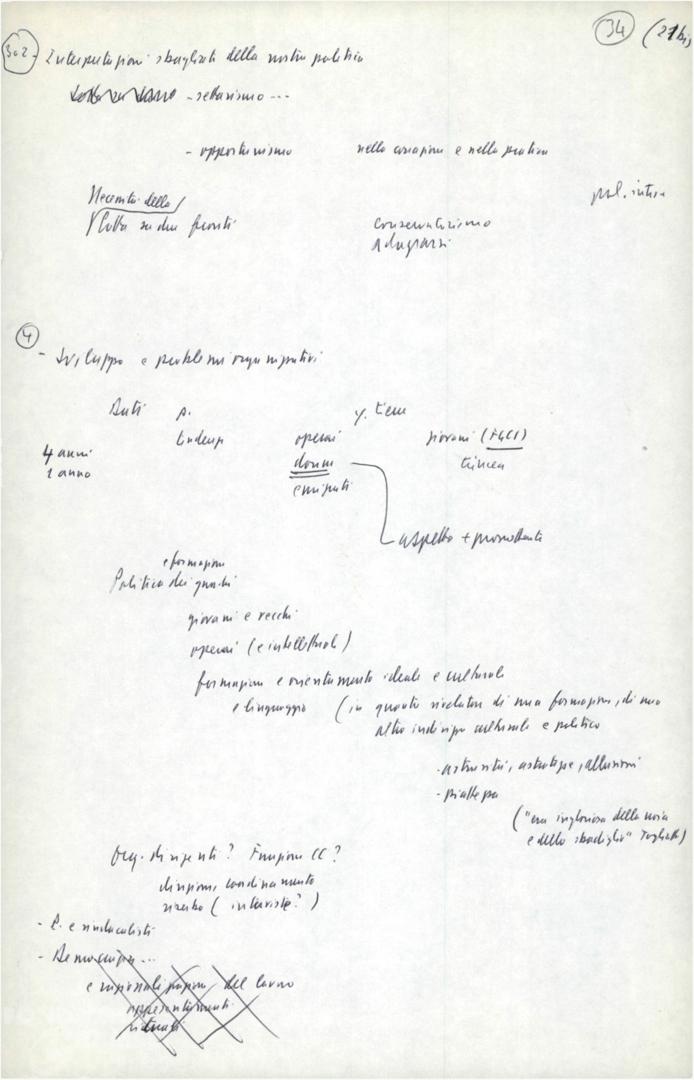 34 (27 bis)
3a2 - Interpretazioni sbagliate della nostra politica
- settarismo ---
- opportunismo nella concezione e nella pratica
pol. interna
Necessità della
lotta su due fronti conservatorismo
4
- Sviluppo e problemi organizzativi
Dati p.
operai giovani (FGCI)
4 anni
1 anno donne
emigrati
aspetto + promettente
e formazione
Politica dei quadri
giovani e vecchi
operai (e intellettuali)
formazione e orientamento ideale e culturale
e linguaggio (in quanto rivelatore di una formazione, di una
altro indirizzo culturale e politico
- astrusità, astrattezze, allusioni
- piattezza
("era ingloriosa della noia
e dello sbadiglio" Togliatti)
Org. dirigenti? Funzione CC?
direzione, coordinamento
(interviste?)
- P. e sindacalisti
- Democrazia ...
e razionalizzazione del lavoro
appesantimenti